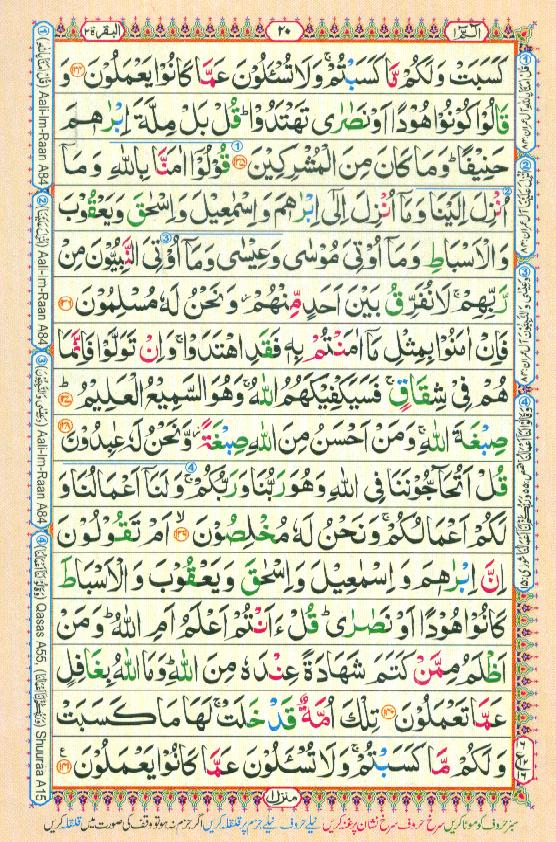 البقرة ٢
٢٠
الٓمّٓ ١
كَسَبَتْ وَلَكُمْ مَّا كَسَبْتُمْ ۚ وَلَا تُسْـَٔلُوْنَ عَمَّا كَانُوْا يَعْمَلُوْنَ ﴿۱۳۴﴾ وَ
قَالُوْا كُوْنُوْا هُوْدًا اَوْ نَصٰرٰى تَهْتَدُوْا ؕ قُلْ بَلْ مِلَّةَ اِبْرٰهٖمَ
حَنِيْفًا ؕ وَمَا كَانَ مِنَ الْمُشْرِكِيْنَ ﴿۱۳۵﴾ قُوْلُوْٓا اٰمَنَّا بِاللّٰهِ وَمَآ
اُنْزِلَ اِلَيْنَا وَمَآ اُنْزِلَ اِلٰٓى اِبْرٰهٖمَ وَاِسْمٰعِيْلَ وَاِسْحٰقَ وَيَعْقُوْبَ
وَالْاَسْبَاطِ وَمَآ اُوْتِيَ مُوْسٰى وَعِيْسٰى وَمَآ اُوْتِيَ النَّبِيُّوْنَ مِنْ
رَّبِّهِمْ ۚ لَا نُفَرِّقُ بَيْنَ اَحَدٍ مِّنْهُمْ ۖ وَنَحْنُ لَهٗ مُسْلِمُوْنَ ﴿۱۳۶﴾
فَاِنْ اٰمَنُوْا بِمِثْلِ مَآ اٰمَنْتُمْ بِهٖ فَقَدِ اهْتَدَوْا ۚ وَاِنْ تَوَلَّوْا فَاِنَّمَا
هُمْ فِيْ شِقَاقٍ ۚ فَسَيَكْفِيْكَهُمُ اللّٰهُ ۚ وَهُوَ السَّمِيْعُ الْعَلِيْمُ ﴿۱۳۷﴾
صِبْغَةَ اللّٰهِ ۚ وَمَنْ اَحْسَنُ مِنَ اللّٰهِ صِبْغَةً ۖ وَّنَحْنُ لَهٗ عٰبِدُوْنَ ﴿۱۳۸﴾
قُلْ اَتُحَآجُّوْنَنَا فِي اللّٰهِ وَهُوَ رَبُّنَا وَرَبُّكُمْ ۚ وَلَنَآ اَعْمَالُنَا وَ
لَكُمْ اَعْمَالُكُمْ ۚ وَنَحْنُ لَهٗ مُخْلِصُوْنَ ﴿۱۳۹﴾ اَمْ تَقُوْلُوْنَ
اِنَّ اِبْرٰهٖمَ وَاِسْمٰعِيْلَ وَاِسْحٰقَ وَيَعْقُوْبَ وَالْاَسْبَاطَ
كَانُوْا هُوْدًا اَوْ نَصٰرٰى ؕ قُلْ ءَاَنْتُمْ اَعْلَمُ اَمِ اللّٰهُ ؕ وَمَنْ
اَظْلَمُ مِمَّنْ كَتَمَ شَهَادَةً عِنْدَهٗ مِنَ اللّٰهِ ؕ وَمَا اللّٰهُ بِغَافِلٍ
عَمَّا تَعْمَلُوْنَ ﴿۱۴۰﴾ تِلْكَ اُمَّةٌ قَدْ خَلَتْ ۚ لَهَا مَا كَسَبَتْ
وَلَكُمْ مَّا كَسَبْتُمْ ۚ وَلَا تُسْـَٔلُوْنَ عَمَّا كَانُوْا يَعْمَلُوْنَ ﴿۱۴۱﴾
منزل ١
سبز حروف کو موٹا کریں سرخ حروف سرخ نشان پر غنہ کریں نیلے حروف نیلے جزم پر قلقلہ کریں اگر جزم نہ ہو تو وقف کی صورت میں قلقلہ کریں
① Aali-Im-Raan A84
② Aali-Im-Raan A84
③ Aali-Im-Raan A84
④ Qasas A55, Shuuraa A15